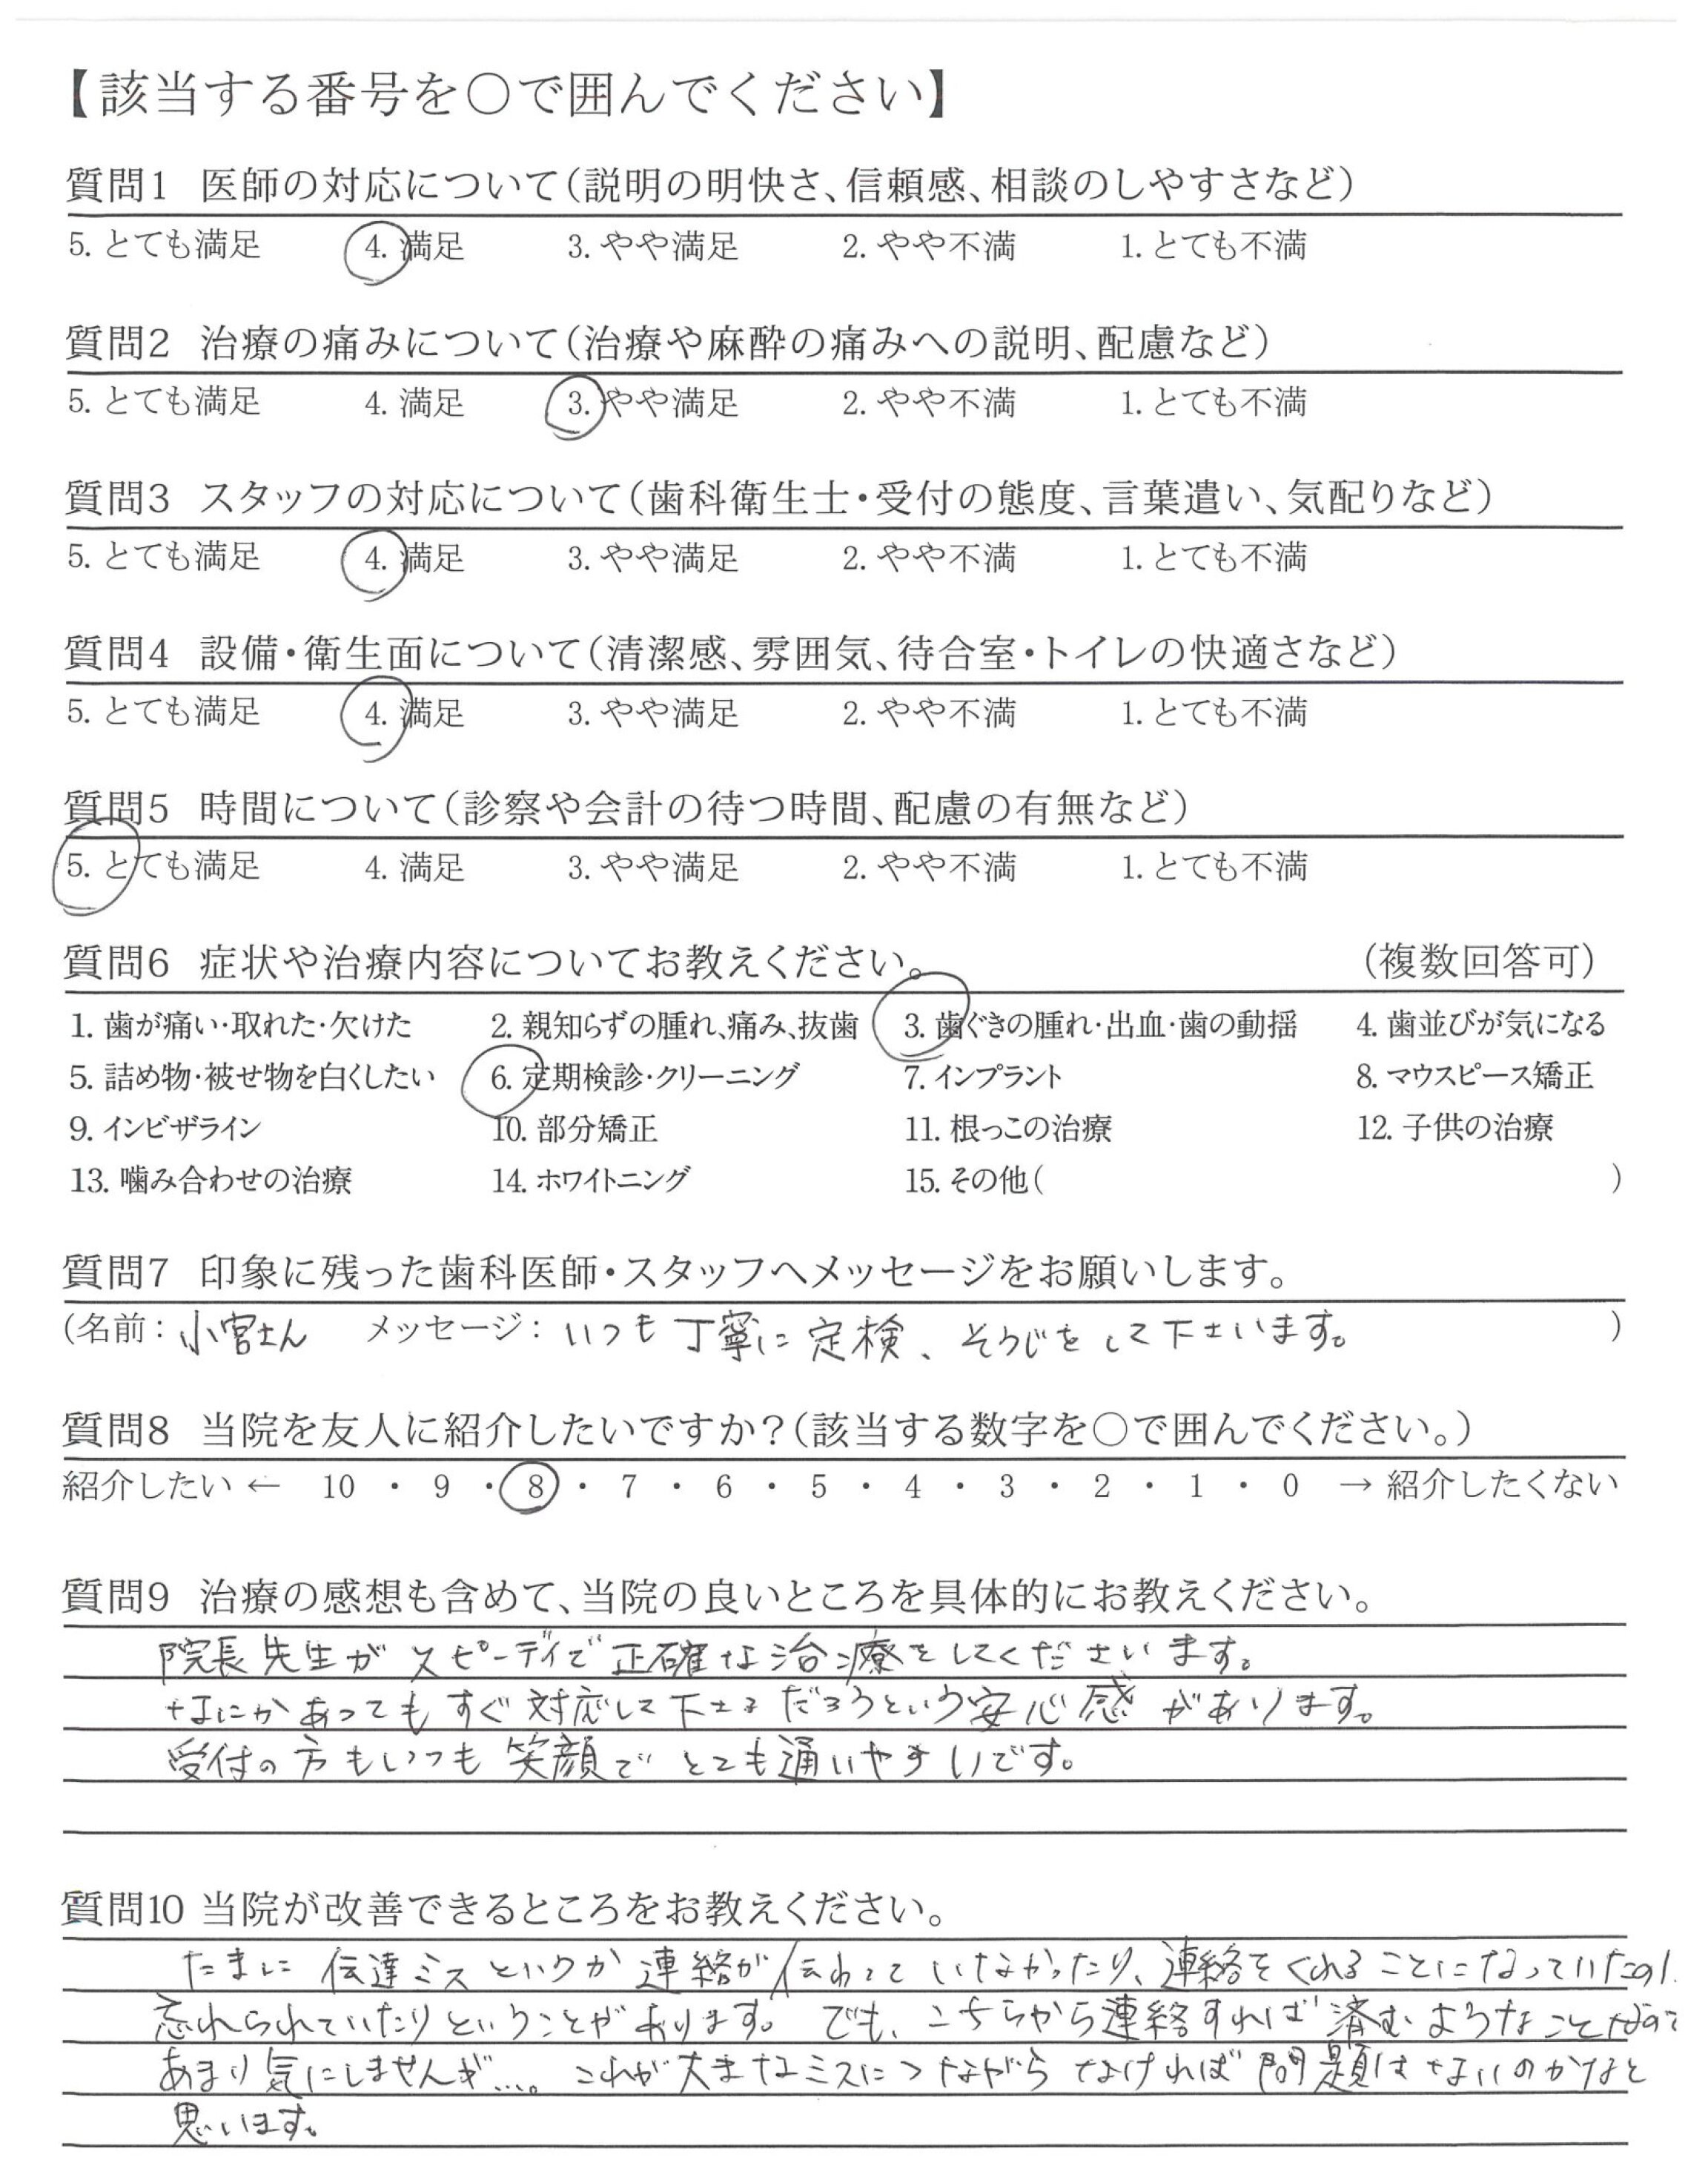 【該当する番号を○で囲んでください】
質問1 医師の対応について（説明の明快さ、信頼感、相談のしやすさなど）
5. とても満足 4. 満足 3. やや満足 2. やや不満 1. とても不満
質問2 治療の痛みについて（治療や麻酔の痛みへの説明、配慮など）
5. とても満足 4. 満足 3. やや満足 2. やや不満 1. とても不満
質問3 スタッフの対応について（歯科衛生士・受付の態度、言葉遣い、気配りなど）
5. とても満足 4. 満足 3. やや満足 2. やや不満 1. とても不満
質問4 設備・衛生面について（清潔感、雰囲気、待合室・トイレの快適さなど）
5. とても満足 4. 満足 3. やや満足 2. やや不満 1. とても不満
質問5 時間について（診察や会計の待つ時間、配慮の有無など）
5. とても満足 4. 満足 3. やや満足 2. やや不満 1. とても不満
質問6 症状や治療内容についてお教えください。 （複数回答可）
1. 歯が痛い・取れた・欠けた 2. 親知らずの腫れ、痛み、抜歯 3. 歯ぐきの腫れ・出血・歯の動揺 4. 歯並びが気になる
5. 詰め物・被せ物を白くしたい 6. 定期検診・クリーニング 7. インプラント 8. マウスピース矯正
9. インビザライン 10. 部分矯正 11. 根っこの治療 12. 子供の治療
13. 噛み合わせの治療 14. ホワイトニング 15. その他（ ）
質問7 印象に残った歯科医師・スタッフへメッセージをお願いします。
（名前： 小宮さん メッセージ： いつも丁寧に定検、そうじをして下さいます。 ）
質問8 当院を友人に紹介したいですか？（該当する数字を○で囲んでください。）
紹介したい ← 10 ・ 9 ・ 8 ・ 7 ・ 6 ・ 5 ・ 4 ・ 3 ・ 2 ・ 1 ・ 0 → 紹介したくない
質問9 治療の感想も含めて、当院の良いところを具体的にお教えください。
院長先生がスピーディで正確な治療をしてくださいます。
なにかあってもすぐ対応して下さるだろうという安心感があります。
受付の方もいつも笑顔でとても通いやすいです。
質問10 当院が改善できるところをお教えください。
たまに伝達ミスというか連絡が伝わっていなかったり、連絡をくれることになっていたのに
忘れられていたりということがあります。でも、こちらから連絡すれば済むようなことなので
あまり気にしませんが…。これが大きなミスにつながらなければ問題はないのかなと
思います。